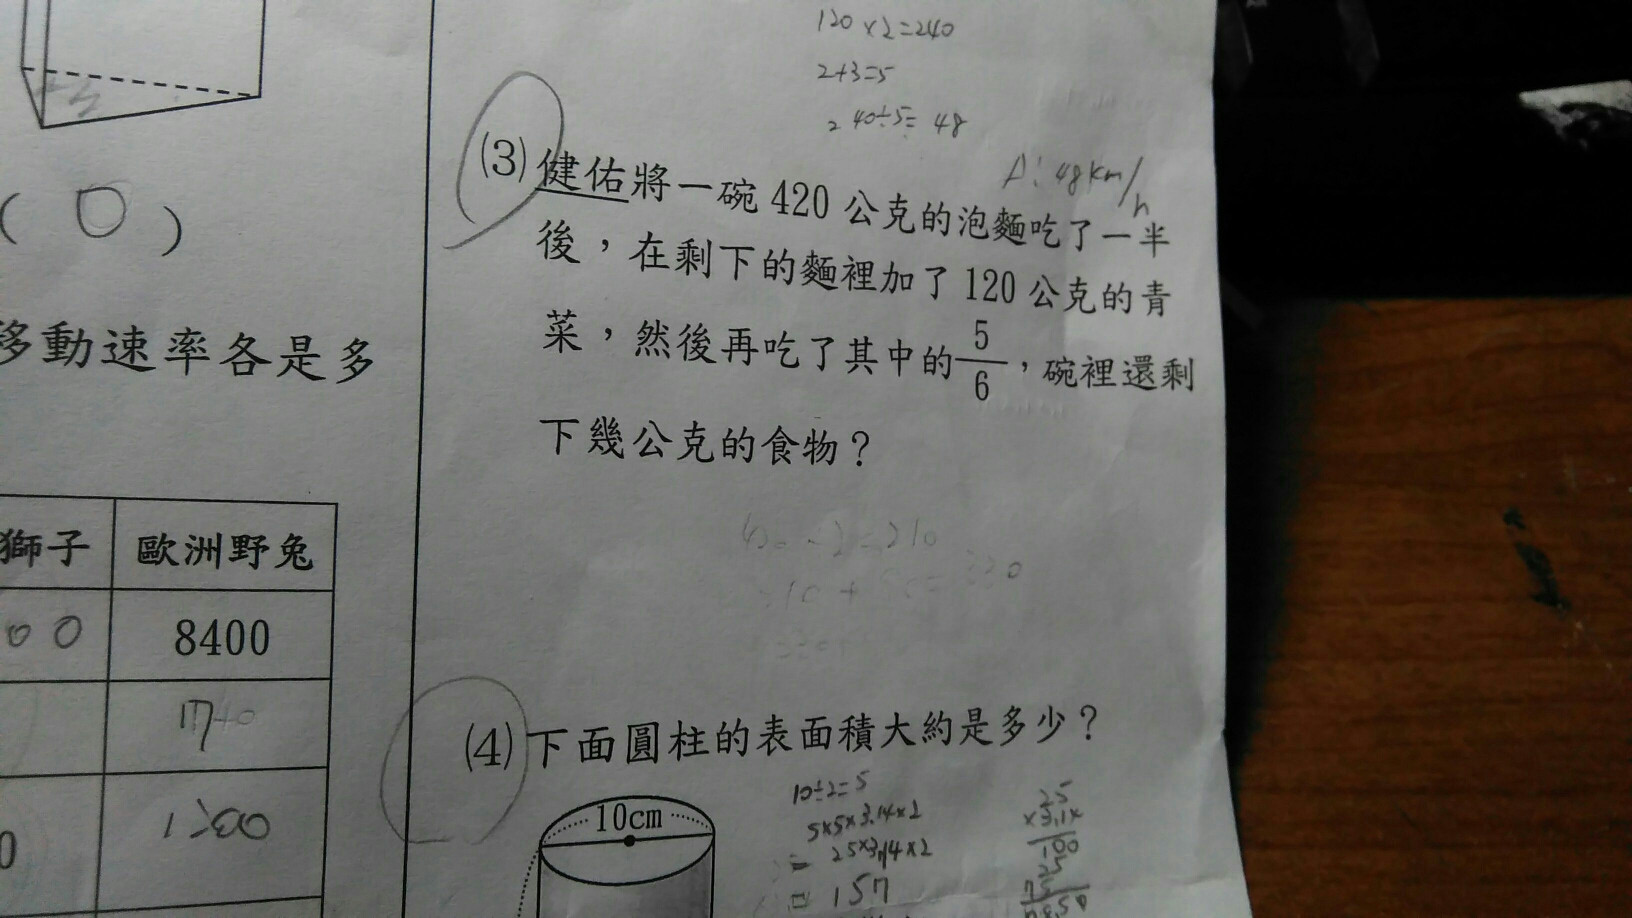 120×2=240
2+3=5
240÷5=48
A:48km/h
(3)健佑將一碗420公克的泡麵吃了一半
後，在剩下的麵裡加了120公克的青
菜，然後再吃了其中的5/6，碗裡還剩
下幾公克的食物？
( O )
移動速率各是多
獅子 歐洲野兔
00 8400
(4)下面圓柱的表面積大約是多少？
10cm
10÷2=5
5×5×3.14×2
=25×3.14×2
=157